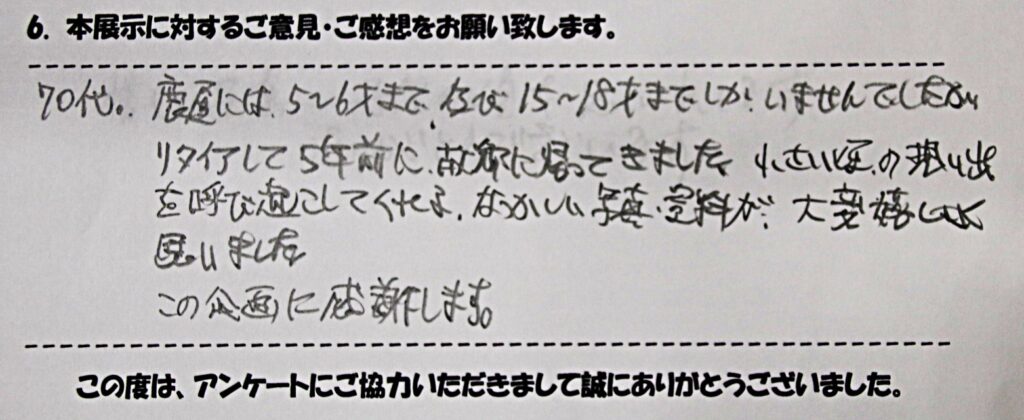 6. 本展示に対するご意見・ご感想をお願い致します。
70代。鹿屋には、5～6才まで、及び 15～18才までしか、いませんでしたが
リタイアして5年前に、故郷に帰ってきました。小さい頃の想い出
を呼び起こしてくれる、なつかしい写真・資料が、大変嬉しく
思いました
この企画に感謝します。
この度は、アンケートにご協力いただきまして誠にありがとうございました。